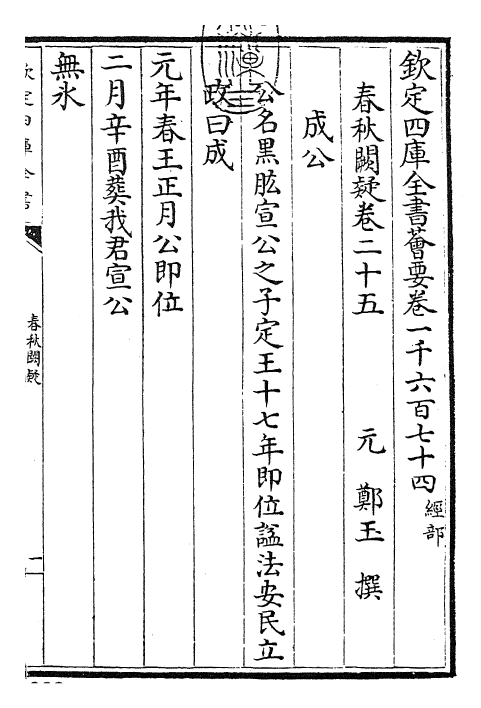 欽定四庫全書薈要卷一千六百七十四 經部
春秋闕疑卷二十五 元 鄭玉 撰
成公
公名黒肱宣公之子定王十七年即位謚法安民立
政曰成
元年春王正月公即位
二月辛酉葬我君宣公
無氷
欽定四庫全書
春秋闕疑
一